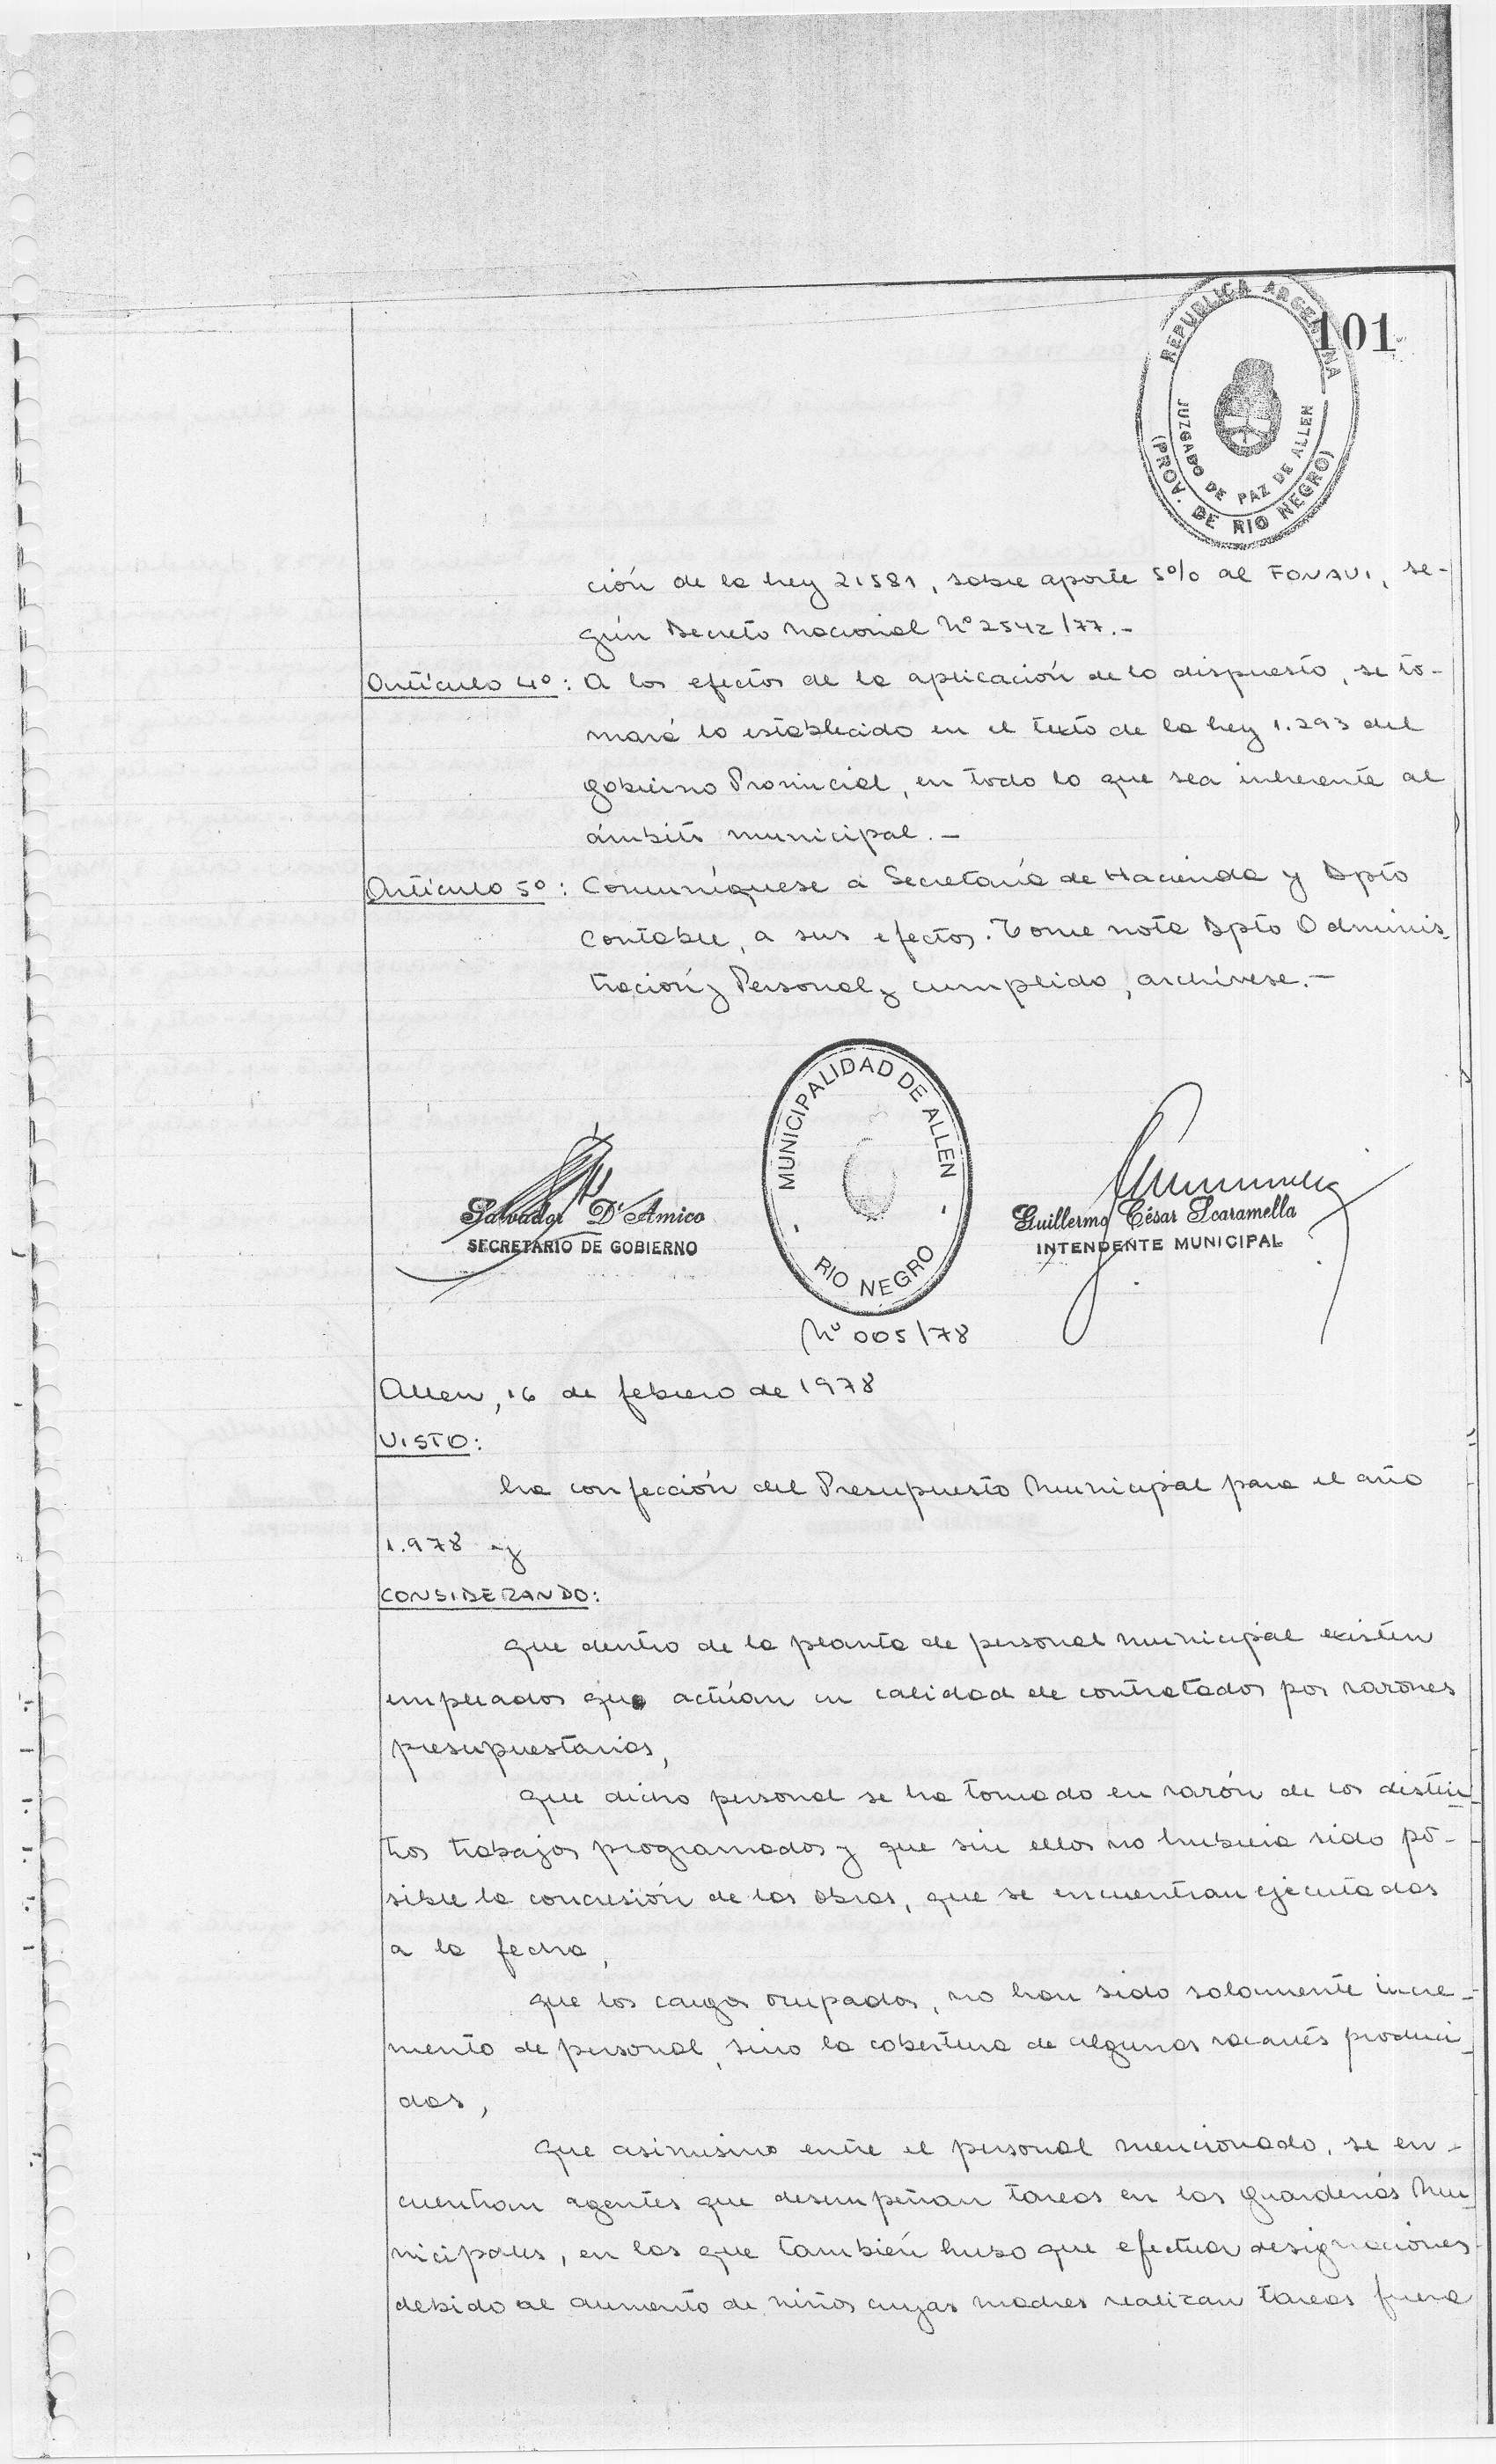 REPUBLICA ARGENTINA
101
JUZGADO DE PAZ DE ALLEN
(PROV. DE RIO NEGRO)
ción de la Ley 21581, sobre aporte 5% al FONAVI, se-
gún Decreto Nacional Nº 2542/77.-
Artículo 4º: A los efectos de la aplicación de lo dispuesto, se to-
mará lo establecido en el texto de la Ley 1.293 del
Gobierno Provincial, en todo lo que sea inherente al
ámbito municipal.-
Artículo 5º: Comuníquese a Secretaría de Hacienda y Dpto
Contable, a sus efectos. Tome nota Dpto Adminis-
tración y Personal y cumplido, archívese.-
MUNICIPALIDAD DE ALLEN
- RIO NEGRO -
Salvador D'Amico
SECRETARIO DE GOBIERNO
Guillermo César Scaramella
INTENDENTE MUNICIPAL
Nº 005/78
Allen, 16 de febrero de 1978
VISTO:
La confección del Presupuesto Municipal para el año
1.978 y
CONSIDERANDO:
que dentro de la planta de personal municipal existen
empleados que actúan en calidad de contratados por razones
presupuestarias,
que dicho personal se ha tomado en razón de los distin-
tos trabajos programados y que sin ellos no hubiera sido po-
sible la concresión de las obras, que se encuentran ejecutadas
a la fecha,
que los cargos ocupados, no han sido solamente incre-
mento de personal, sino la cobertura de algunas vacantes produci-
das,
que asimismo entre el personal mencionado, se en-
cuentran agentes que desempeñan tareas en las Guarderías Mu-
nicipales, en las que también hubo que efectuar designaciones
debido al aumento de niños cuyas madres realizan tareas fuera